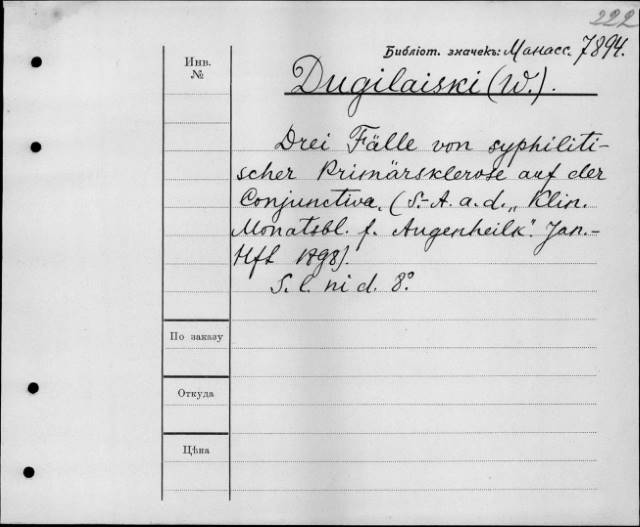 222
Библіот. значекъ: Манасс. 7894.
Инв.
№
Dugilaiski (W.).
Drei Fälle von syphiliti-
scher Primärsklerose auf der
Conjunctiva. (S.-A. a. d. „Klin.
Monatsbl. f. Augenheilk.“ Jan.-
Hft 1898).
S. l. ni d. 8°.
По заказу
Откуда
Цѣна